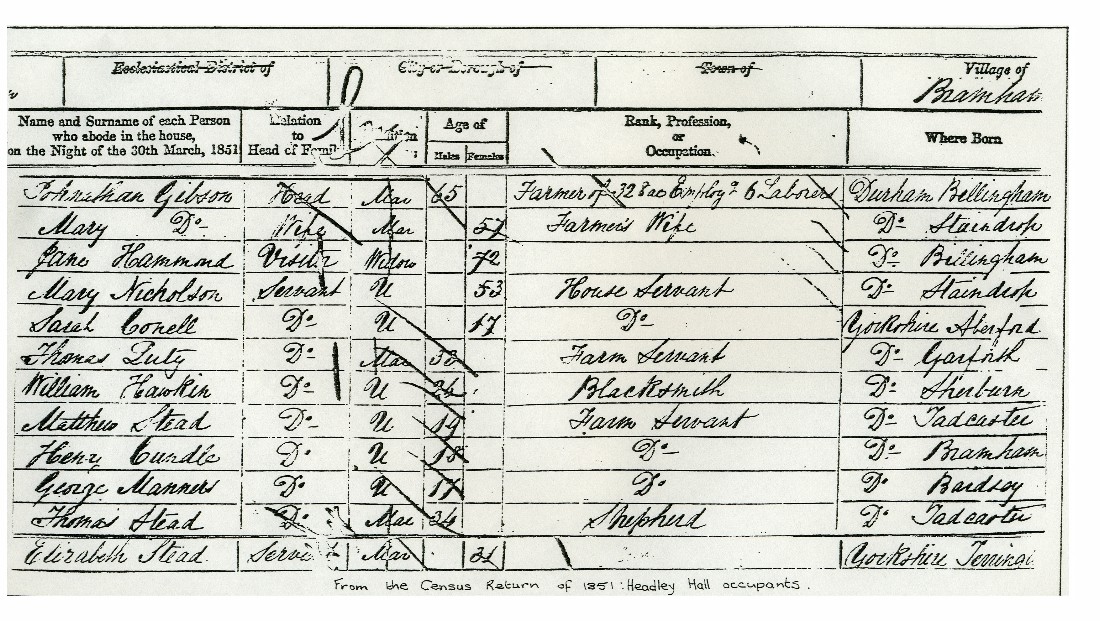 Ecclesiastical District of City or Borough of Town of Village of
Bramham
Name and Surname of each Person who abode in the house, on the Night of the 30th March, 1851 Relation to Head of Family Age of Males Females Rank, Profession, or Occupation. Where Born
Johnathan Gibson Head Mar 65 Farmer of 328 ac Employg 6 Laborers Durham Bellingham
Mary Do Wife Mar 57 Farmer's Wife Do Staindrop
Jane Hammond Visitor Widow 72 Do Billingham
Mary Nicholson Servant U 53 House Servant Do Staindrop
Sarah Conell Do U 17 Do Yorkshire Aberford
Thomas Duty Do Mar Farm Servant Do Garforth
William Hawkin Do U Blacksmith Do Sherburn
Matthew Stead Do U 19 Farm Servant Do Tadcaster
Henry Cundle Do U 18 Do Do Bramham
George Manners Do U 17 Do Do Bardsey
Thomas Stead Do Mar 34 Shepherd Do Tadcaster
Elizabeth Stead Mar 31 Yorkshire
From the Census Return of 1851: Headley Hall occupants.